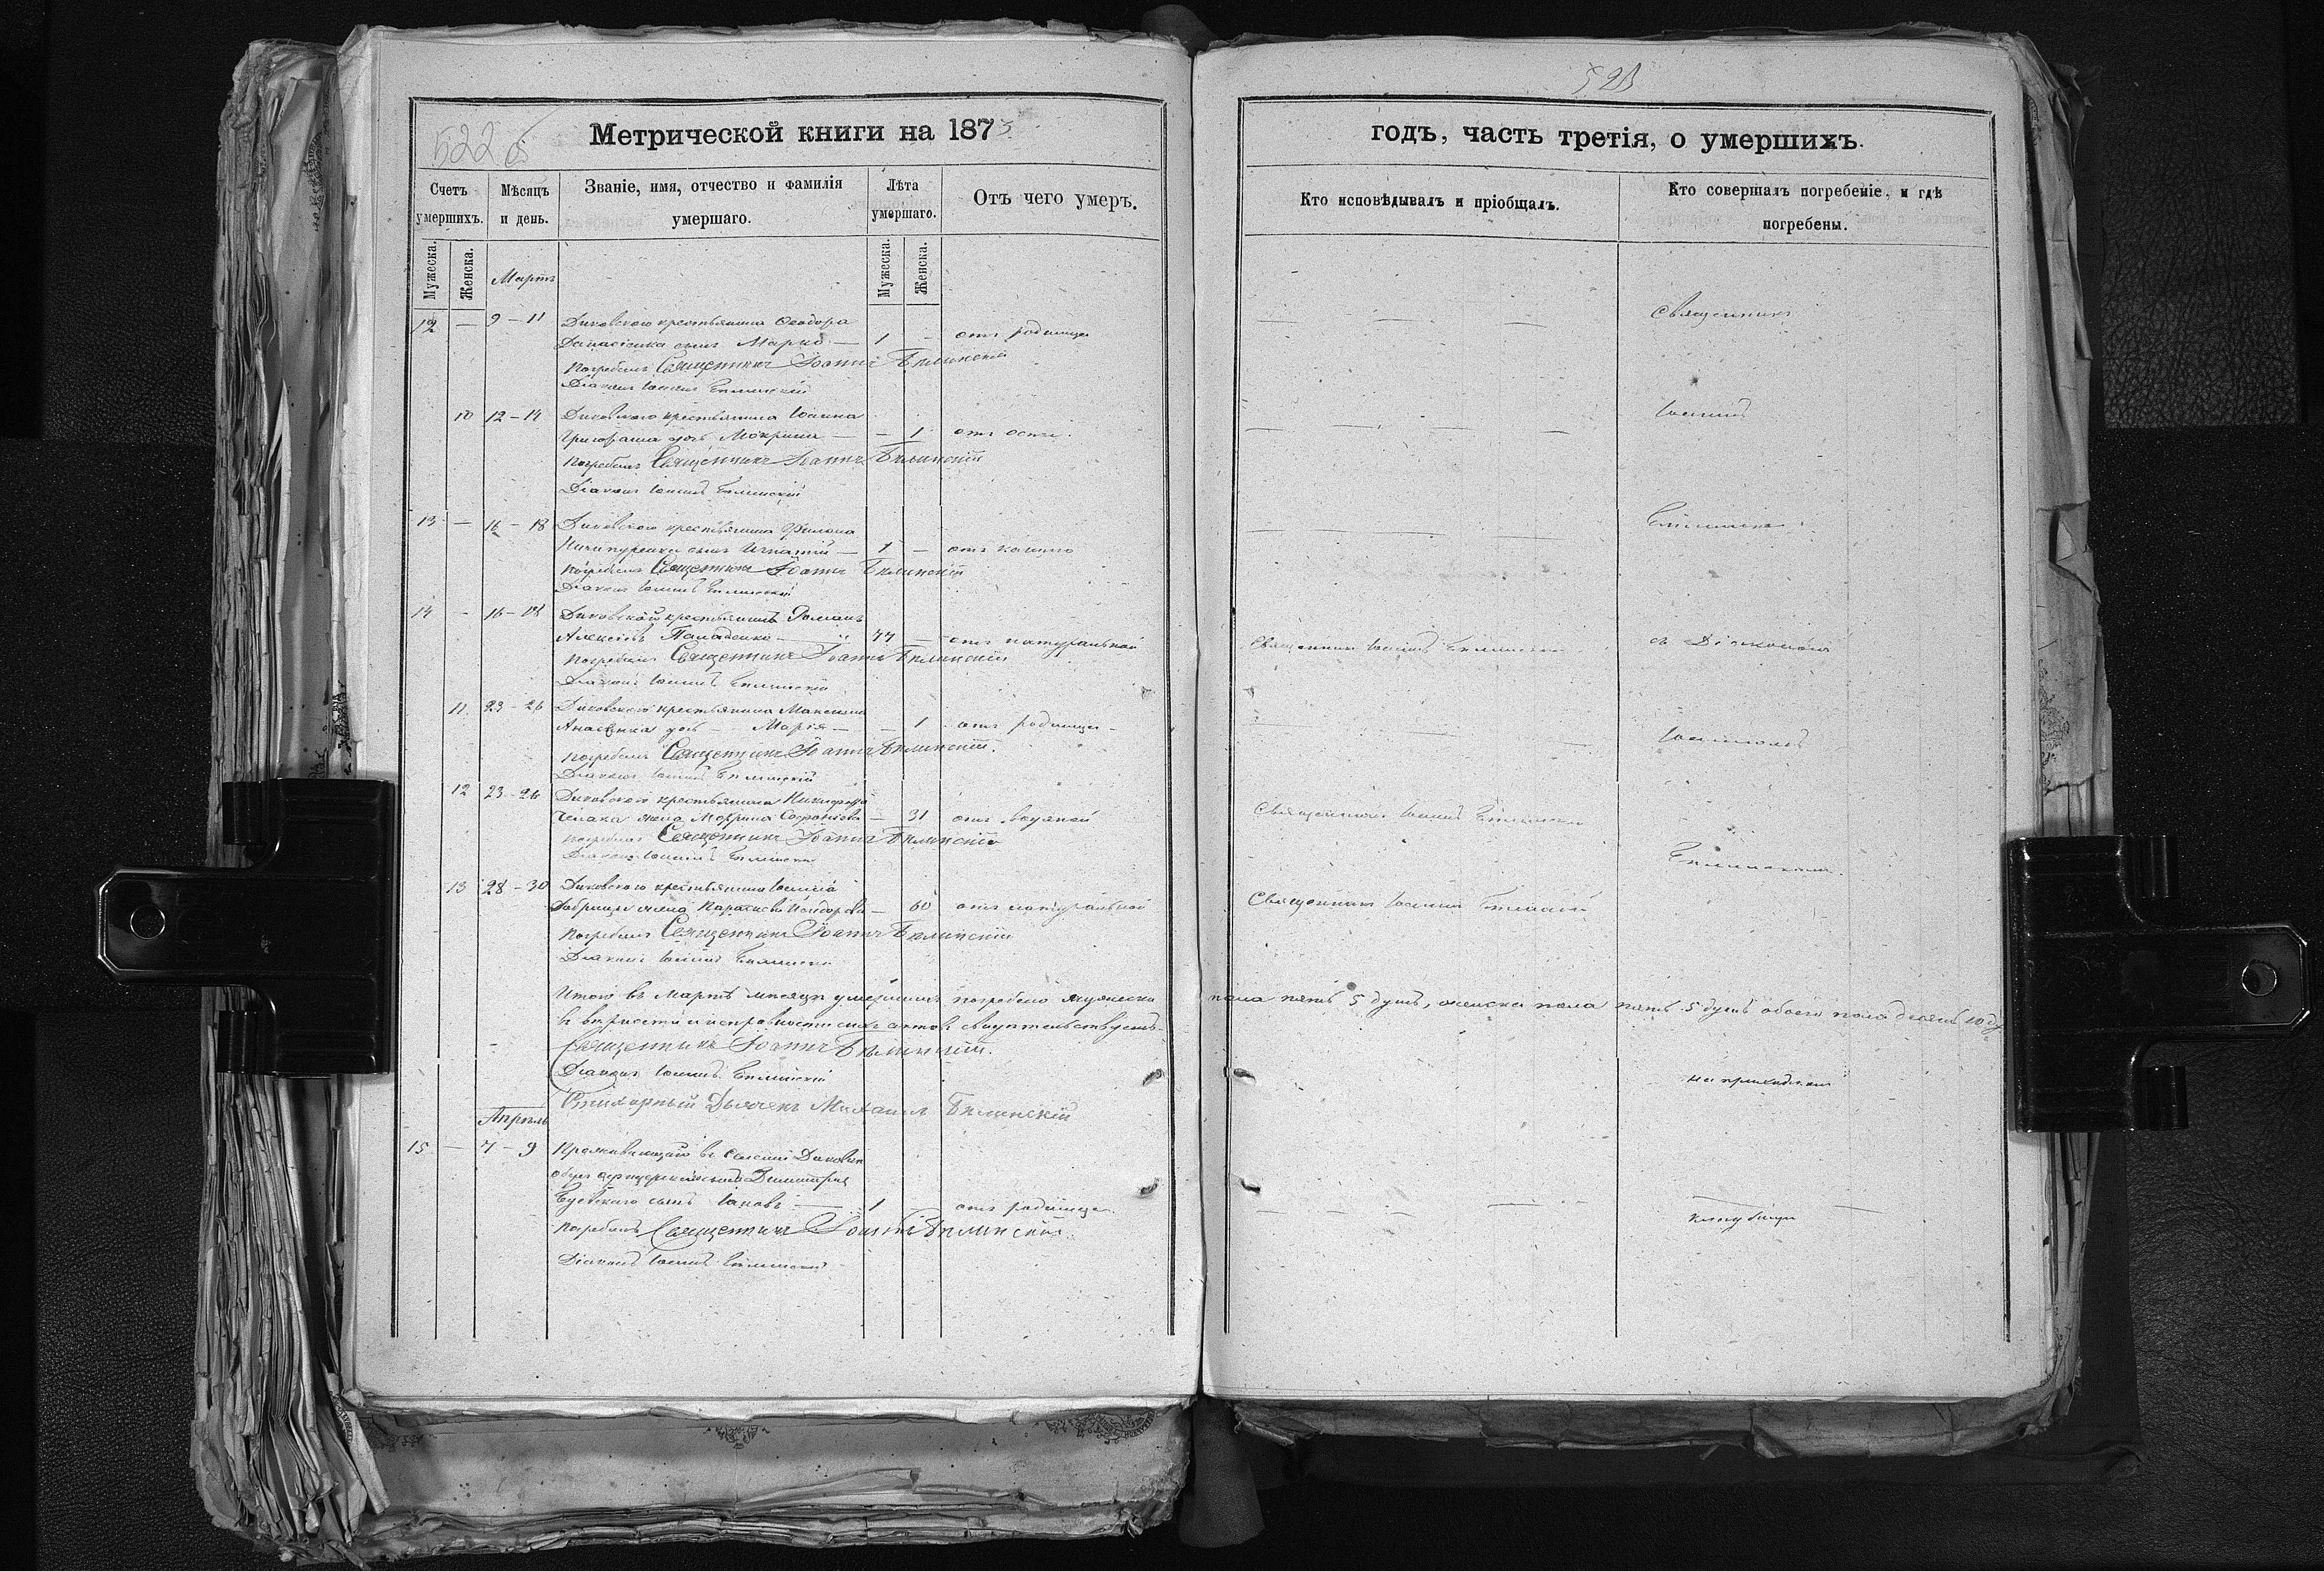 523
522 об
Метрической книги на 1873
годъ, часть третія, о умершихъ.
Счетъ умершихъ.
Мѣсяцъ и день.
Званіе, имя, отчество и фамилія умершаго.
Лѣта умершаго.
Отъ чего умеръ.
Кто исповѣдывалъ и пріобщалъ.
Кто совершалъ погребеніе, и гдѣ погребены.
Мужеска.
Женска.
Мартъ
Мужеска.
Женска.
12 — 9 – 11 крестьянина Ѳеодора
сынъ Марко — 1 – отъ родимца
Погребалъ Священникъ Іоаннъ Бѣлинскій
Діаконъ Іоаннъ Бѣлинскій
Священникъ
10 12 – 14 крестьянина Іоанна
дочь Мокрина — – 1 отъ оспы.
Погребалъ Священникъ Іоаннъ Бѣлинскій
Діаконъ Іоаннъ Бѣлинскій
Іоаннъ
13 — 16 – 18 крестьянина Филона
Ничипуренка сынъ Игнатій — 1 — отъ кашлю
Погребалъ Священникъ Іоаннъ Бѣлинскій
Діаконъ Іоаннъ Бѣлинскій
14 – 16 – 18 крестьянинъ Романъ
Алексіевъ — 77 — отъ натуральной
Погребалъ Священникъ Іоаннъ Бѣлинскій
Діаконъ Іоаннъ Бѣлинскій
Священникъ Іоаннъ Бѣлинскій
съ Діакономъ
11 23 – 26 крестьянина Максима
дочь – Марія – – 1 отъ родимца –
Погребалъ Священникъ Іоаннъ Бѣлинскій.
Діаконъ Іоаннъ Бѣлинскій
Іоанномъ
12 23 – 26 крестьянина Никифора
жена Мокрина — 31 отъ водяной
Погребалъ Священникъ Іоаннъ Бѣлинскій
Діаконъ Іоаннъ Бѣлинскій
Священникъ Іоаннъ Бѣлинскій
Бѣлинскимъ.
13 28 – 30 крестьянина Іоанна
жена — 60 отъ натуральной
Погребалъ Священникъ Іоаннъ Бѣлинскій
Діаконъ Іоаннъ Бѣлинскій
Священникъ Іоаннъ Бѣлинскій
Итого въ Мартѣ мѣсяцѣ умершихъ погребено мужеска пола пять 5 душъ, женска пола пять 5 душъ обоего пола десять 10
въ вѣрности и исправности сихъ актовъ свидѣтельствуемъ
Священникъ Іоаннъ Бѣлинскій.
Діаконъ Іоаннъ Бѣлинскій
на приходскомъ
Стихарный Дьячекъ Михаилъ Бѣлинскій
Апрѣль
15 — 7 – 9 Проживающаго въ
Димитрія
сынъ Іаковъ — 1 отъ родимца
Погребалъ Священникъ Іоаннъ Бѣлинскій.
Діаконъ Іоаннъ Бѣлинскій
кладбищѣ